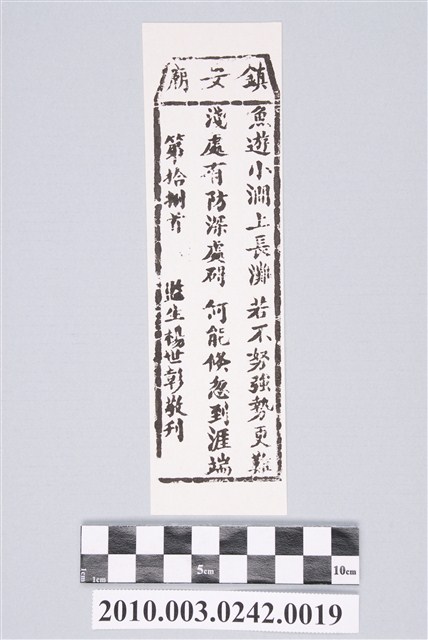 鎮文廟
魚遊小澗上長灘 若不努強勢更難
淺處有防深處碍 何能倐忽到涯端
第拾捌首 生楊世彰敬刊
5cm
10cm
1cm
2010.003.0242.0019